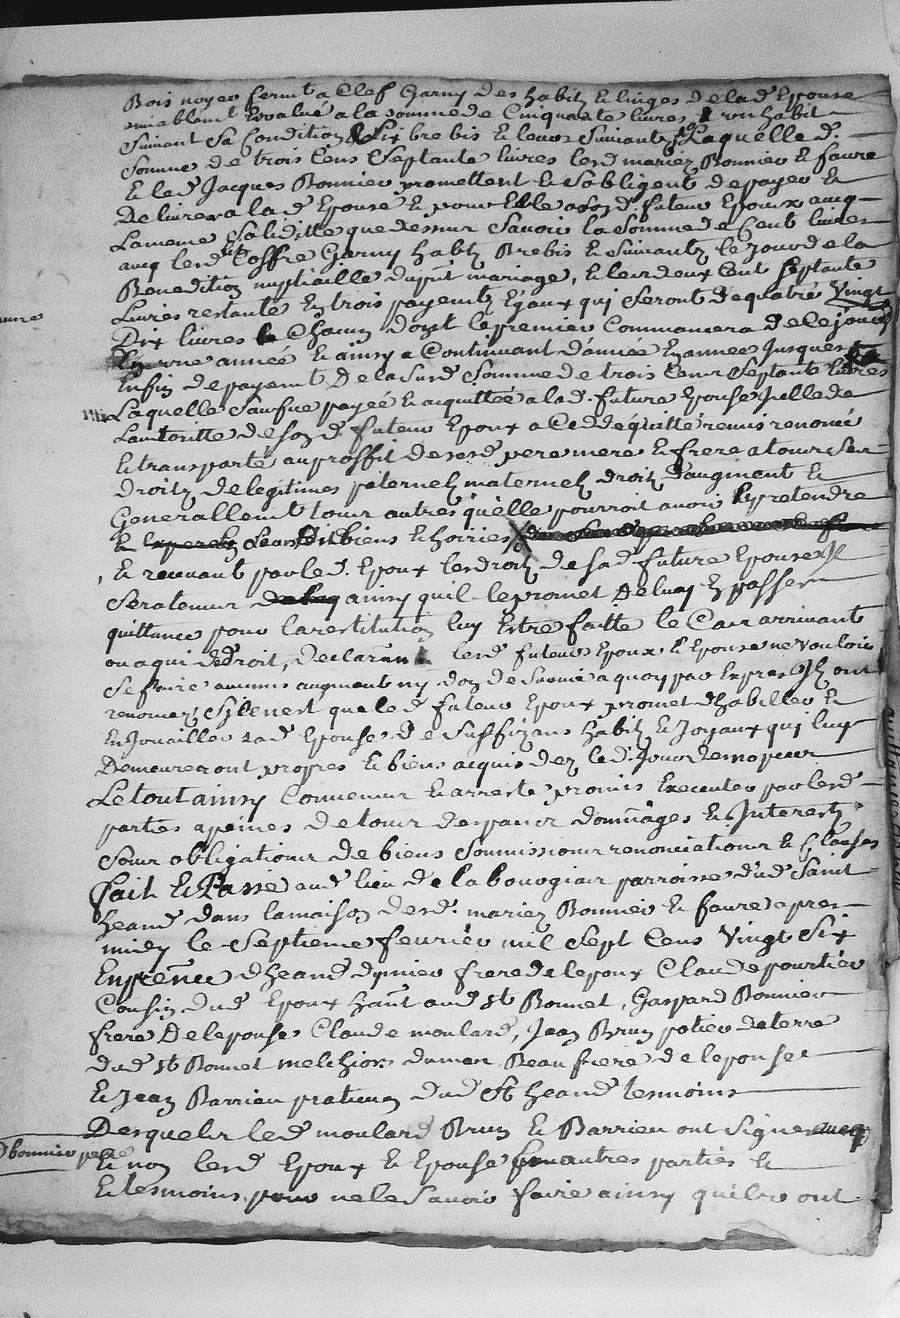 Bois noyer ferant a Clef Garny des habitz & linges de lad Epouse
amiablemt Evalué a la somme de Cinquante livres, & son habit
suivant sa Condition & six brebis & leurs suivantz Laquelle d.
somme de trois Cens septante livres lesd mariez Bonnier & faure
& led Jacques Bonnier promettent & sobligent de payer &
Delivrer a lad Epouse & pour Elle a sond. futeur Epoux avec
La meme soliditte que dessur savoir la somme de Cent livres
avec lesd Coffre Garny habitz Brebis & suivantz le jour de la
Benediction nuptialle du pnt mariage, & les deux Cent septante
Livres restante En trois payemtz Egaux qui seront de quatre Vingt
Dix livres Chacun dont le premier Commancera de ce jourdhuy
En une année & ainsy a Continuant d'année En année Jusques
Enfin de payemt De la susd somme de trois Cens septante livres
Laquelle somme payée & acquittée a lad. future Epouse Jcelle de
Lautoritte de son d. futeur Epoux a Cedde quitté remis renoncé
& transporté au proffit de sesd pere mere & frere a tour ses
droitz de legitimes paternelz maternelz droitz d'augment &
Generallemt tour autres quelle pourroit avoir & pretendre
& Esperer sur lesd biens & hoiries X
& recevant par led. Epoux lesd droitz de sad. future Epouse Jl
sera tenur ainsy quil le promet De luy En passer
quittance pour la restitution luy Estre faitte le Cas arrivant
ou a qui de droit, declarant lesd futeurs Epoux & Epouse ne vouloir
se faire aucuns augment ny don de survie a quoy par Expres Jlz ont
renoncez sy len est que led futeur Epoux promet d'habiller &
En Joailler lad Epouse de suffizans habitz & Joyaux qui luy
Demeureront propres & biens acquis dez led. Jour de nopces
Le tout ainsy Convenur & arresté promis Executer par lesd
parties a peines de tour despancz dommages & Interestz
sour obligationr de biens soumissionr renonciationr & Clauses
fait & Passé aud lieu de la bourgiar parroisse dud Saint
heand dans la maison desd. mariez Bonnier & faure apres
midy le septieme fevrier mil sept Cens Vingt Six
En presence d'heand dupnier frere de lepoux Claude pourtier
Cousin dud Epoux hant aud St Bonnet, Gaspard Bonnier
frere De lepouse Claude moulard, Jean Brun potier de terre
dud St Bonnet melchior dumar Beaufrere de lepouse
& Jean Barrieu praticien dud St heand tesmoins
Desquelr led moulard Brun & Barrieu ont signe avec
& non lesd Epoux & Epouse autres parties &
& tesmoins pour ne le savoir faire ainsy quilr ont